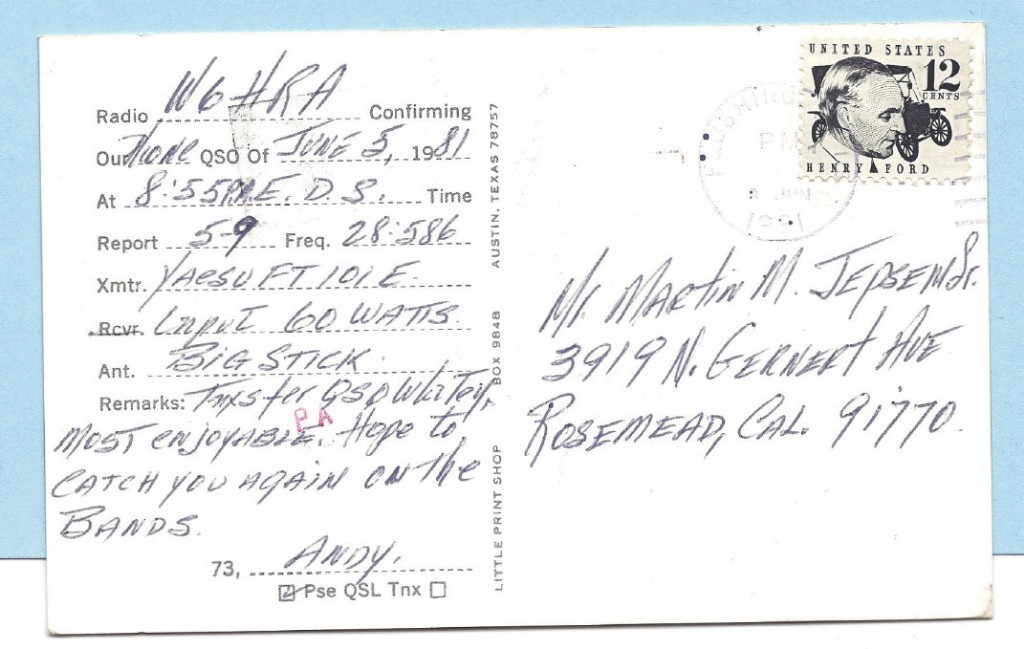 Radio W6HRA Confirming
Our Phone QSO Of JUNE 5, 1981
At 8:55 P.M. E.D.S. Time
Report 5-9 Freq. 28:586
Xmtr. YAESU FT 101 E
Rcvr. Input 60 WATTS
Ant. BiG STICK
Remarks: Tnxs fer QSO Whitey,
MOST ENJOYABLE. Hope to
CATCH YOU AGAIN ON the
BANDS.
73, ANDY.
Pse QSL Tnx
PA
LITTLE PRINT SHOP BOX 9848 AUSTIN, TEXAS 78757
FLUSHING
PM
JUN
1981
UNITED STATES
12
CENTS
HENRY FORD
Mr. MARtin M. JEPSEN Sr.
3919 N. GERNERT AVE
ROSEMEAD, CAL. 91770.